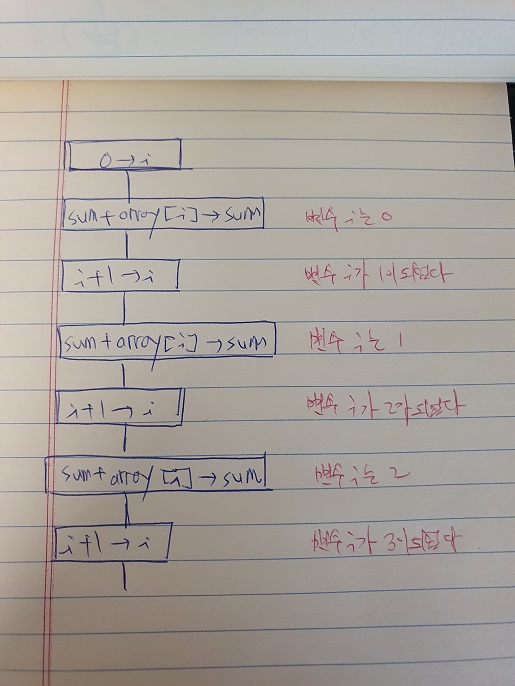 0→i
sum+array[i]→sum 변수 i는 0
i+1→i 변수 i가 1이 되었다
sum+array[i]→sum 변수 i는 1
i+1→i 변수 i가 2가 되었다
sum+array[i]→sum 변수 i는 2
i+1→i 변수 i가 3이 되었다